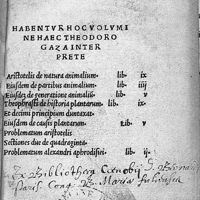 HABENTVR HOC VOLVMI
NE HAEC THEODORO
GAZA INTER
PRETE
Aristotelis de natura animalium. lib. ix
Eiusdem de partibus animalium. lib. iiij
Eiusdem de generatione animaliū lib. v
Theophrasti de historia plantarum. lib. ix
Et decimi principium duntaxat.
Eiusdem de causis plantarum lib. v
Problematum aristotelis
Sectiones duæ de quadraginta.
Problematum alexandri aphrodisiei lib. ij.
Ex Bibliotheca Cœnobij
Cong. B. Mariæ